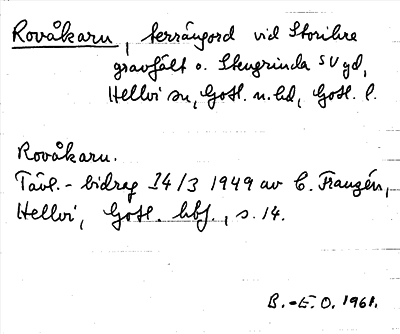 Rovåkarn, terrängord vid Storihre
gravfält o. Stengrinda SV gd,
Hellvi sn, Gotl. n. hd, Gotl. l.
Rovåkarn.
Tävl.-bidrag 14/3 1949 av C. Franzén,
Hellvi, Gotl. hbf., s. 14.
B.-E. O. 1961.